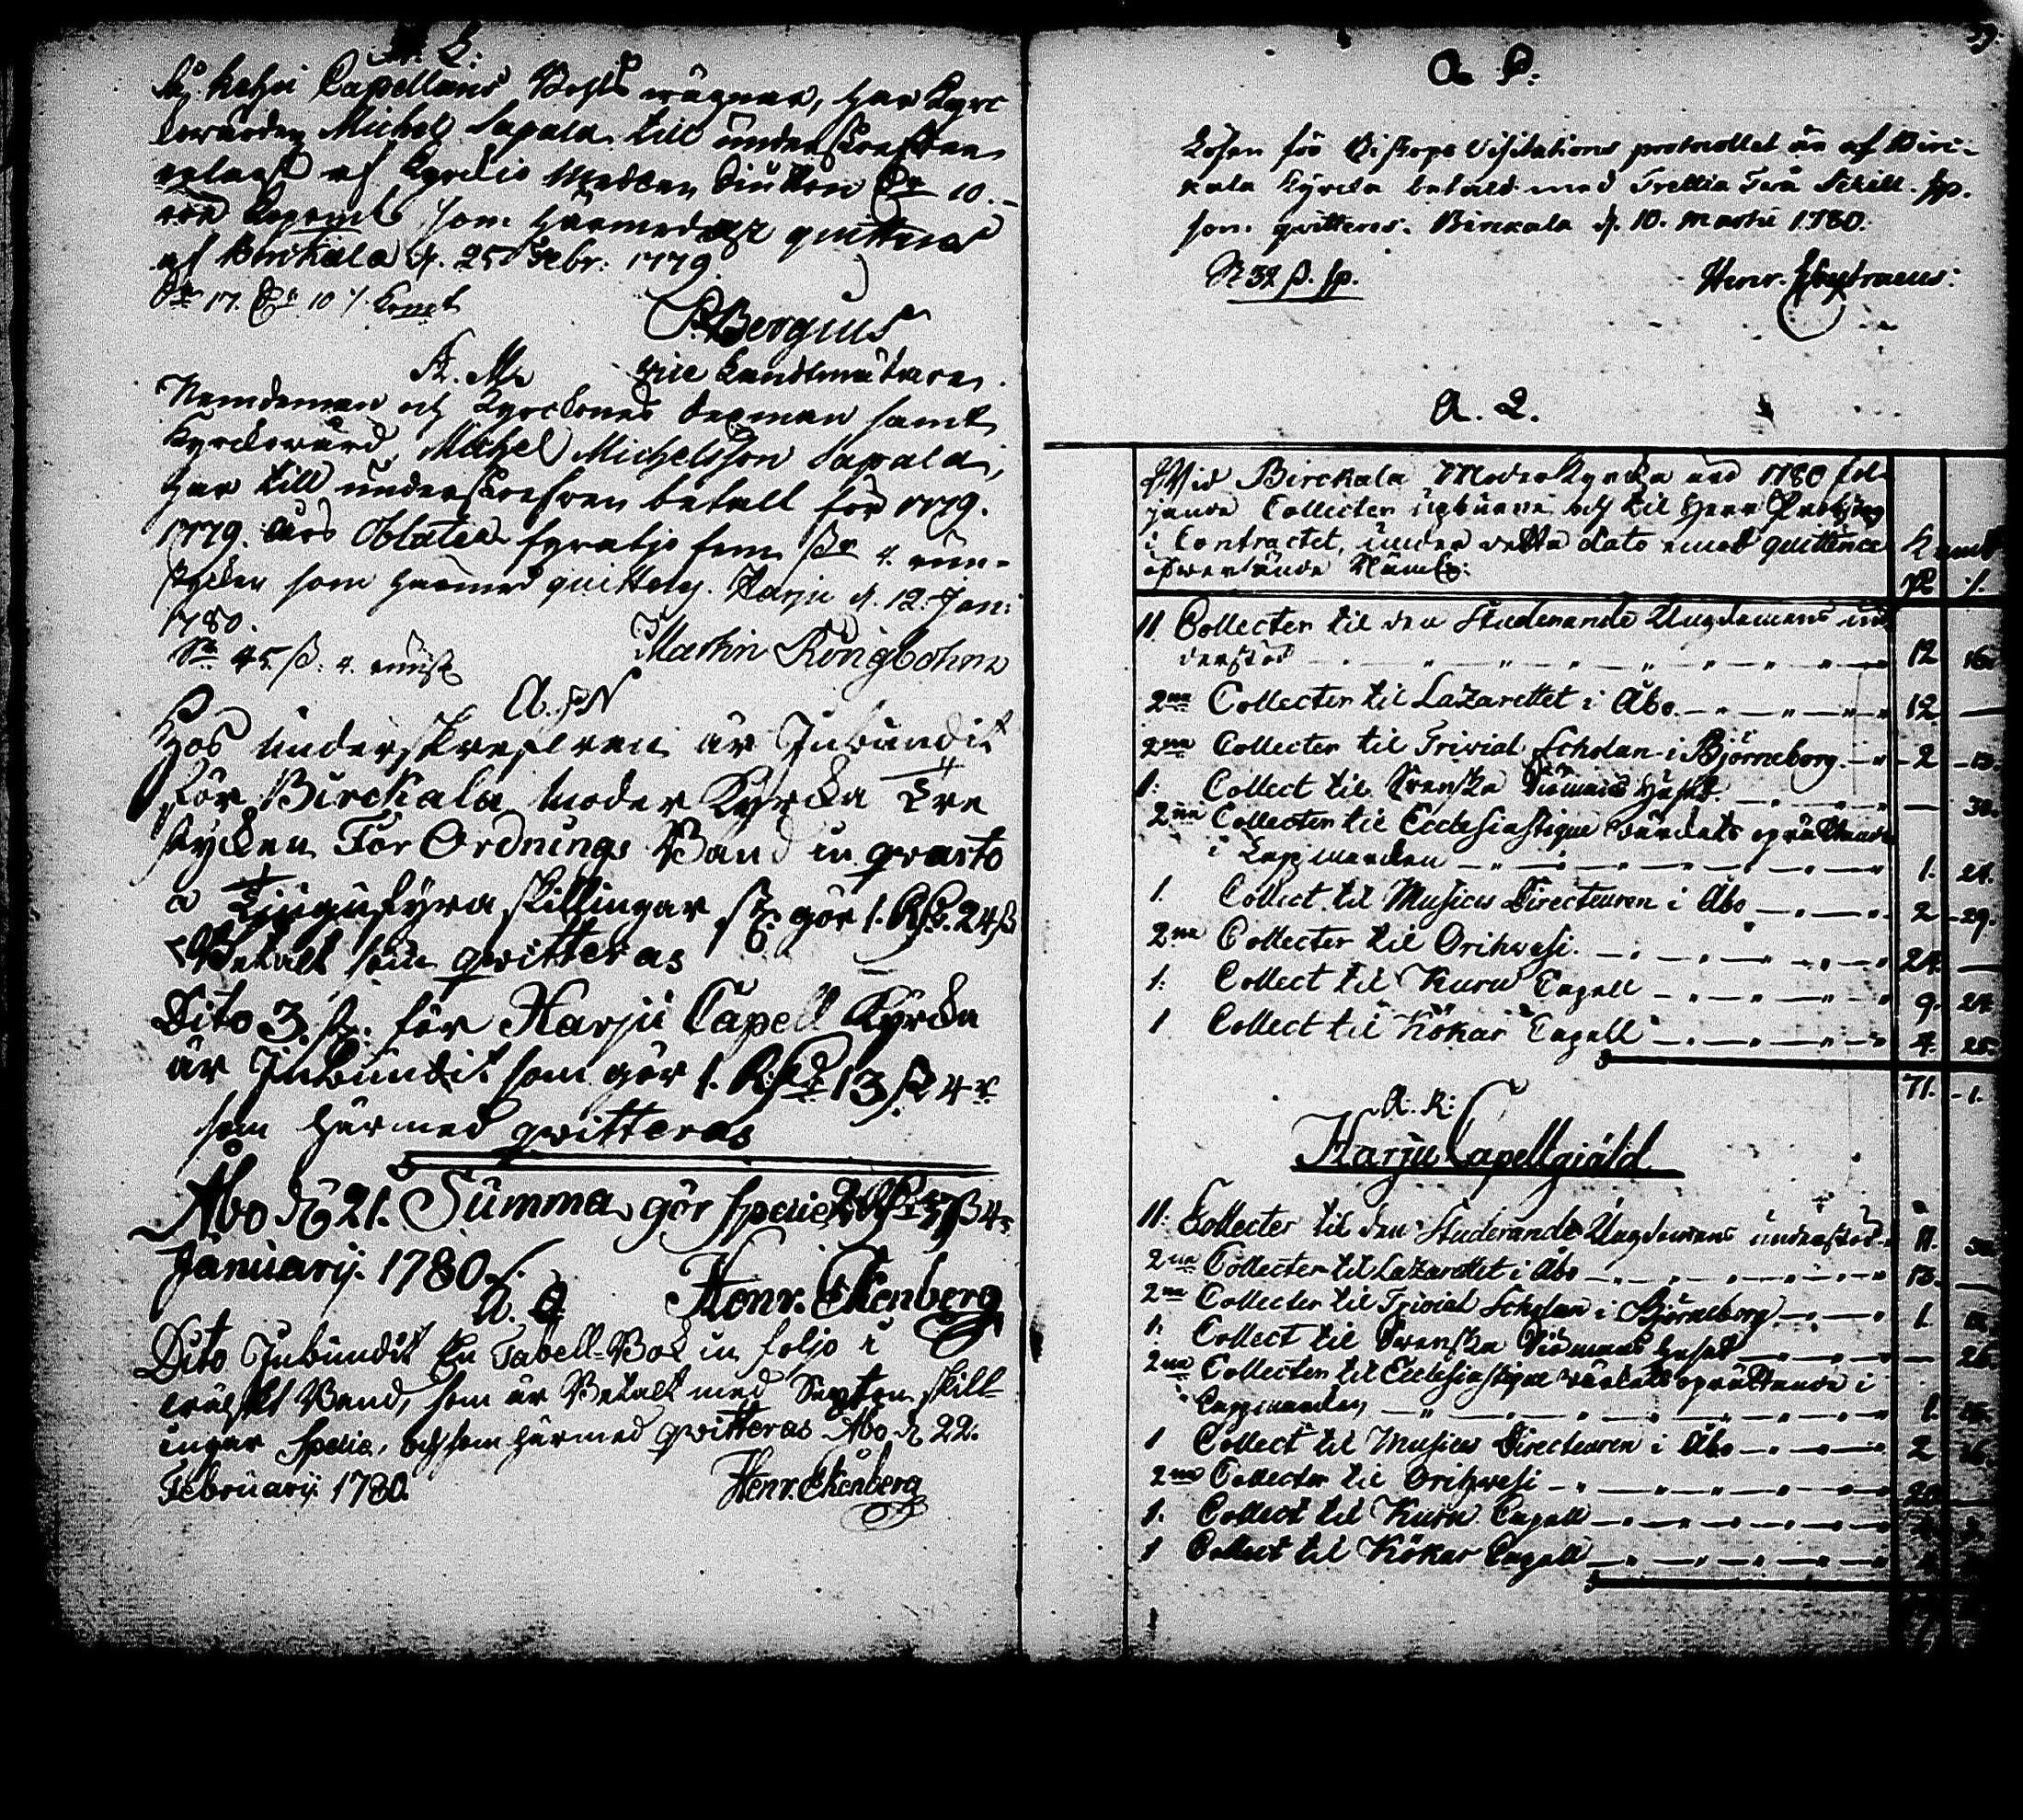 L:
Capellans wägnar, har Kyrc
kowärden Michel Sapala till underskrefven
erlagt af Kyrckio Medlen Siutton D:r 10.
som härmedelst quitteras
af Birckala d. 25 Febr: 1779.
17. 10 /. Kopmt
P. Bergius
Vice Landtmätare.
A. M.
Nemdeman och Kyrckones sexman samt
Kyrckowärd, Michel Michelsson Sapala,
har till underskrefven betalt för 1779.
1779. års Oblater fyratjo fem ßr 4. run-
stycken som härmed quitteras. Harju d. 12. Jan:
1780.
45. ß. 4. runst
Martin Ringbohm
A. N
Hos underskrefven är Inbundit
för Birckala moder Kyrcka Tre
stycken Förordnings Band in qvarto
a Tjugufyra skillingar st: gör 1. R: 24 ß
Betalt som qvitteras
Dito 3. st. för Harju Capell Kyrcka
är Inbundit som gör 1. R 13 ß 4 r
som härmed qvitteras
Åbo d 21. Summa gör specie 2 R 37 ß 4
Januarij. 1780.
Henr. Ekenberg
A. O
Dito Inbundit En Tabell-Bok in folio i
Band, som är Betalt med Sexton skill-
ingar Specie, och som härmed qvitteras Åbo d 22.
Februarij 1780.
Henr. Ekenberg
A. P.
Lösen för Biskops Visitations protocollet är af Birc-
kala Kyrcka betald med Trettio Två Schill. sp.
som qvitteras. Birckala d. 10. Martii 1780.
32 ß. sp.
Henr.
A. Q.
Wid Birckala Moderkyrcka äro 1780 föl-
jande Collecter upburne och til Herr Probsten
i Contractet, under detta dato emot quittence
öfwerlände Näml:
11 Collecter til den Studerande Ungdomens un-
derstöd 12 16.
2ne Collecter til Lazarettet i Åbo. 12 —
2ne Collecter til Trivial Scholan i Björneborg. 2 13.
1. Collect til Svenska Siömans Huset. — 30.
2ne Collecter til Ecclesiastique wärckets oprättande
i Lappmarcken 1. 24.
1. Collect til Musices Directeuren i Åbo 2 29.
2ne Collecter til Orihwesi. 24. —
1. Collect til Kuru Capell 9. 24.
1 Collect til Kökar Capell 4. 25.
71. 1.
A. R:
Harju Capellgiäld
11. Collecter til den Studerande Ungdomens understöd 11.
2ne Collecter til Lazarettet i Åbo 13. —
2ne Collecter til Trivial Scholan i Björneborg 1.
1. Collect til Svenska Siömans huset — 26.
2ne Collecter til Ecclesiastique wärckets oprättande i
Lappmarcken 1.
1 Collect til Musices Directeuren i Åbo 2 16.
2ne Collecter til Orihwesi 20 —
1. Collect til Kuru Capell
1 Collect til Kökar Capell